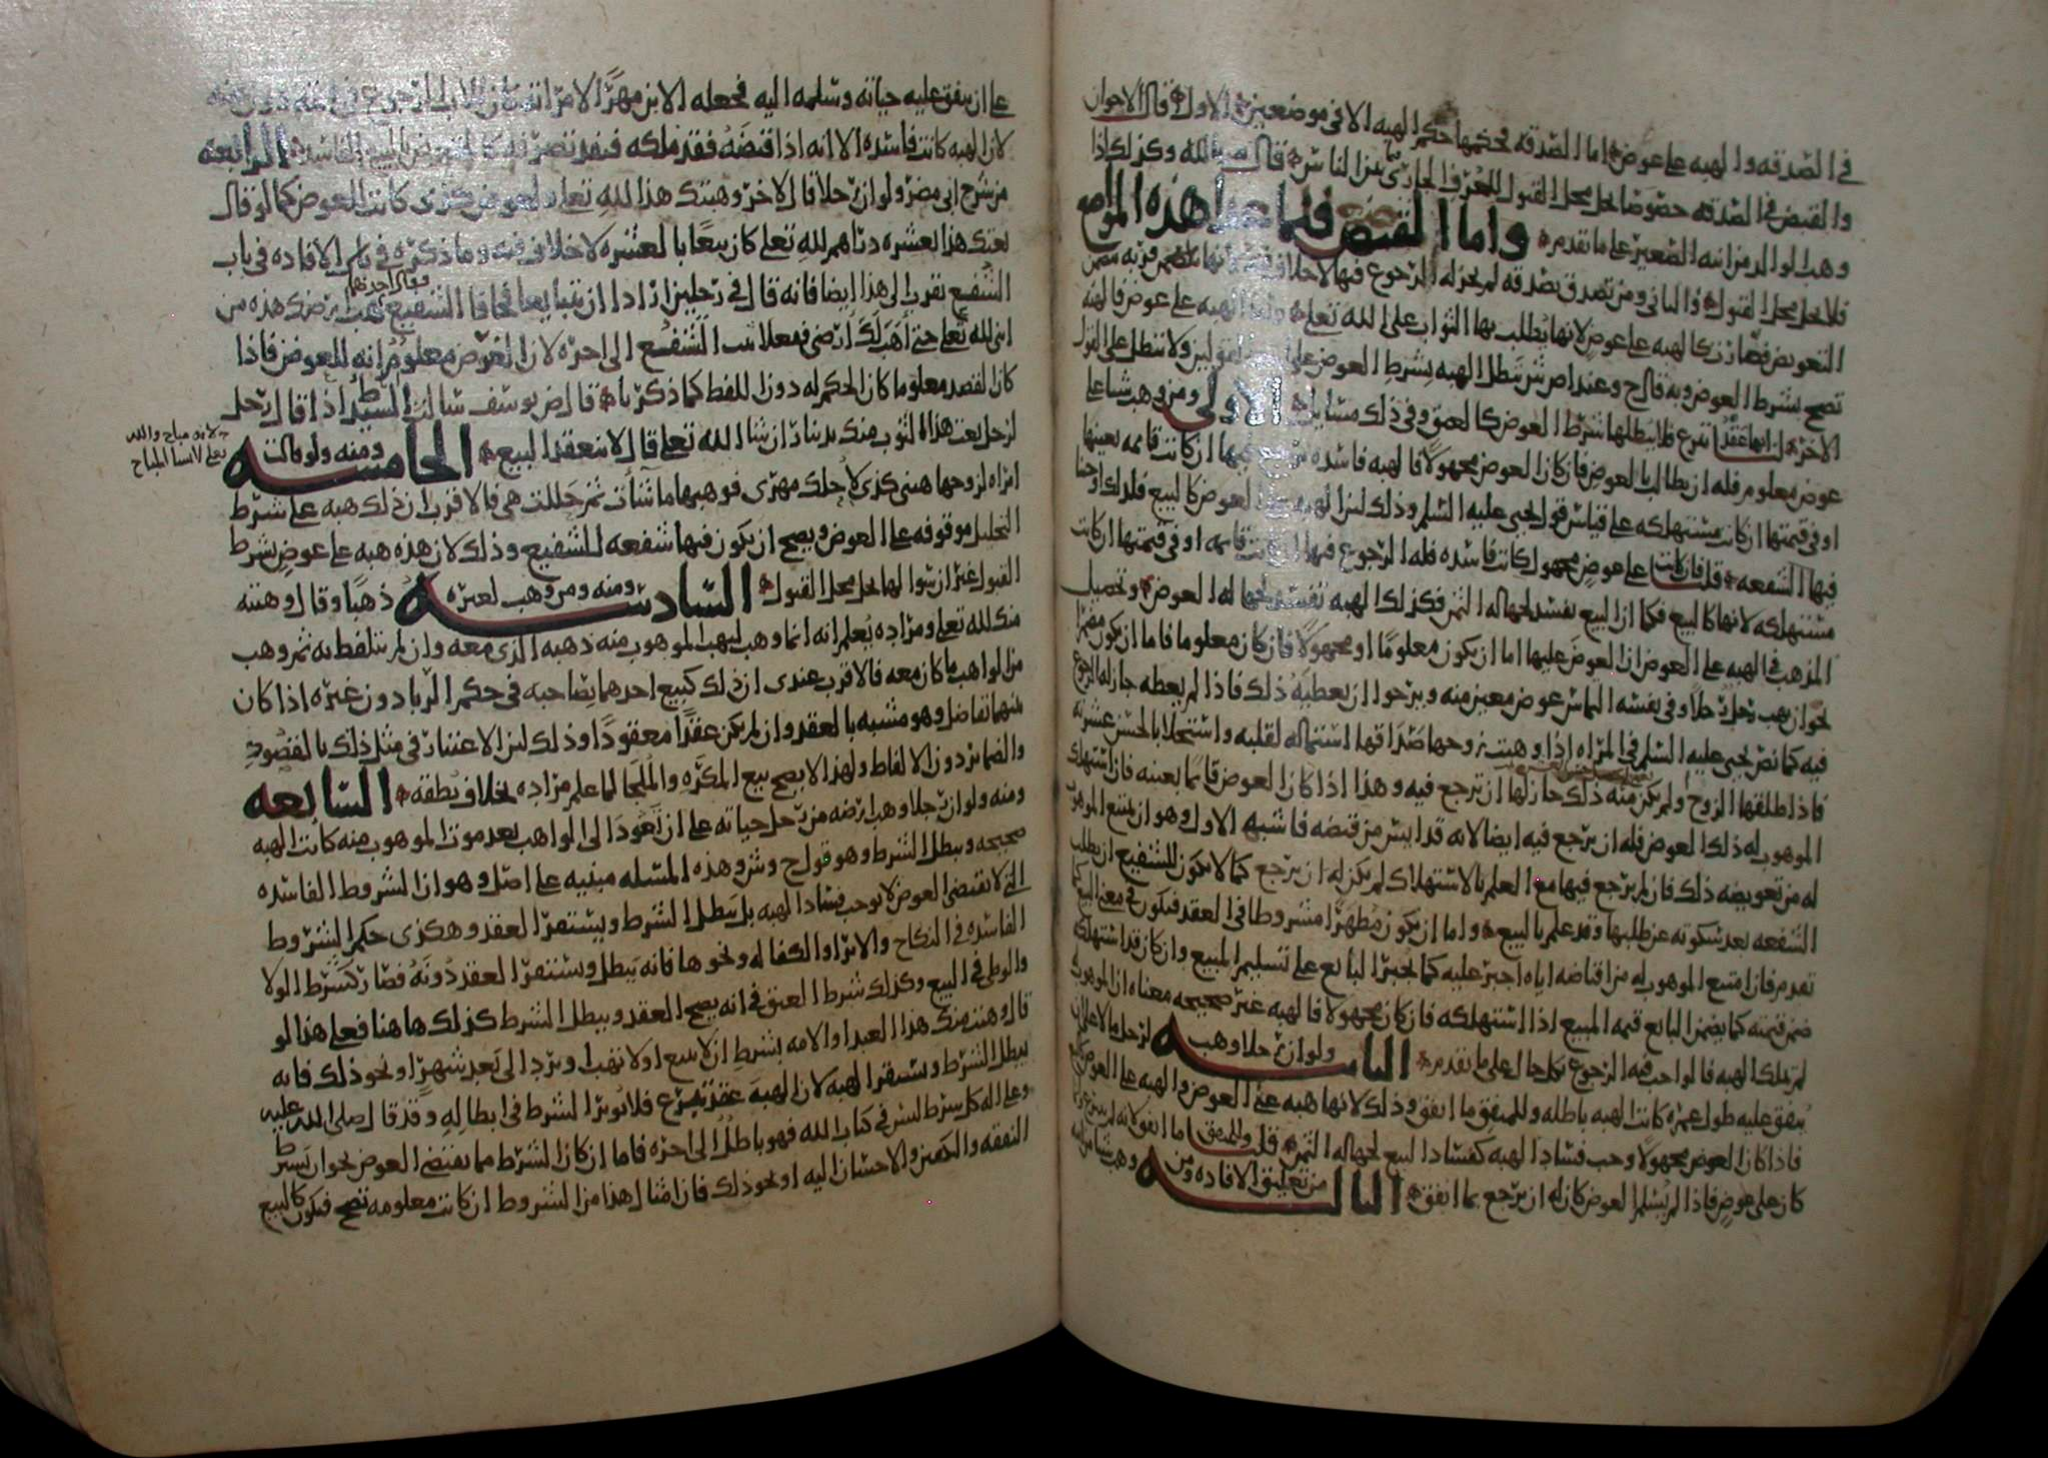 في الصدقه والهبه على عوض اما الصدقه فحكمها حكم الهبه الا في موضعين الاول قال الاخوان
والقبض في الصدقه خصوصا يحل محل القبول للعرف الجاري بين الناس قال الله وكذلك اذا
وهب لوالد من ابنه الصغير على ما تقدم واما القبض فيما عدا هذه المواضع
فلا يحل محل القبول والثاني ومن تصدق بصدقه لم يجز له الرجوع فيها لا خلاف
التعويض فصارت كالهبه على عوض لانها يطلب بها الثواب على الله تعلى الهبه على عوض فالهبه
تصح بشرط العوض وبه قال ح وعند اص ش تبطل الهبه بشرط العوض على القولين ولا تبطل على القول
الاخر لنا انها عقد تبرع فلا يبطلها شرط العوض كالعتق وفي ذلك مسايل الاولى ومن وهب شيا على
عوض معلوم فله ان يطالب بالعوض فان كان العوض مجهولا فالهبه فاسده فيها ان كانت قايمه بعينها
او في قيمتها ان كانت مستهلكه على قياس قول يحيى عليه السلم وذلك لنا العوض كالبيع فلذلك اوجبنا
فيها الشفعه قلت فان كانت على عوض مجهول كانت فاسده فله الرجوع فيها ان كانت قايمه او في قيمتها ان كانت
مستهلكه لانها كالبيع فكما ان البيع يفسد لجهاله الثمن فكذلك الهبه تفسد لجهاله العوض وتحصيل
المذهب في الهبه على العوض ان العوض عليها اما ان يكون معلوما او مجهولا فان كان معلوما فاما ان يكون مضمرا
نحو ان يهب رجل رجلا وفي نفسه التماس عوض معين منه ويرجوا ان يعطيه ذلك فاذا لم يعطه جاز له الرجوع
فيه كما نص يحيى عليه السلم في المراه اذا وهبت زوجها صداقها استماله لقلبه واستجلابا لحسن عشرته
فاذا طلقها الزوج ولم يكن منه ذلك جاز لها ان ترجع فيه وهذا اذا كان العوض قايما بعينه فان استهلك
الموهوب له ذلك العوض فله ان يرجع فيه ايضا لانه قد ايس من قبضه فاشبه الاول وهو ان يمتنع الموهوب
له من تعويضه ذلك فان لم يرجع فيها مع العلم بالاستهلاك لم يكن له ان يرجع كما لا يكون للشفيع ان يطلب
الشفعه بعد سكوته عن طلبها وقد علم بالبيع واما ان يكون مظهرا مشروطا في العقد فيكون في معنى البيع كما
تقدم فان امتنع الموهوب له من اقباضه اياه اجبر عليه كما يجبر البايع على تسليم المبيع وان كان قد استهلك
ضمن قيمته كما يضمن البايع قيمه المبيع اذا استهلكه فان كان مجهولا فالهبه غير صحيحه معناه ان الموهوب
لم يملك الهبه فالواجب فيه الرجوع بكل حال على ما تقدم الثانيه ولو ان رجلا وهب لرجل مالا على ان
ينفق عليه طول عمره كانت الهبه باطله وللمنفق ما انفق وذلك لانها هبه على العوض والهبه على العوض كالبيع
فاذا كان العوض مجهولا وجب فساد الهبه كفساد البيع لجهاله الثمن قلت وللمنفق اما انفق لانه لم يتبرع
كان على عوض فاذا لم يسلم العوض كان له ان يرجع بما انفق الثالثه من تعليق الافاده ومن وهب شيا من ابنه
على ان ينفق عليه حياته وسلمه اليه فجعله الابن مهرا لامراته فان للاب الرجوع
لان الهبه كانت فاسده الا انه اذا قبضه فقد ملكه فنفد تصرفه الرابعه
من شرح ابي مضر ولو ان رجلا قال لاخر وهبتك هذا لله تعلى ولعوض كذى كانت للعوض كما لو قال
بعتك هذا بعشره دراهم لله تعلى كان بيعا بالعشره لا خلاف فيه وما ذكره في الافاده في باب
فقال احدهما
الشفيع يقرب الى هذا ايضا فانه قال في رجلين ارادا ان يتبايعا فخافا الشفيع فهب ارضك هذه من
ابني لله تعلى حتى اهب لك ارضي ففعلا ثبت الشفع الى اخره لان العوض معلوم انه للعوض فاذا
كان القصد معلوما كان الحكم له دون اللفظ كما ذكرنا قال ض يوسف سالت السيد اذا قال رجل
لرجل بعت هذا الثوب منك بدينار ان شا الله تعلى قال لا ينعقد البيع الخامسه ومنه ولو قالت
لانه مباح والله
تعلى لا يشا المباح
امراه لزوجها هبني كذى لاحلك مهري فوهبها ما شات ثم حللت هي فالاقرب ان ذلك هبه على شرط
التحليل موقوفه على العوض ويصح ان يكون فيها شفعه للشفيع وذلك لان هذه هبه على عوض بشرط
القبول غير ان سوالها يحل محل القبول السادسه ومنه ومن وهب لغيره ذهبا وقال وهبته
منك لله تعلى ومراده يعلم انه انما وهب ليهب الموهوب منه ذهبه الذي معه وان لم يتلفظ به ثم وهب
من الواهب ما كان معه فالاقرب عندى ان ذلك كبيع احدهما بصاحبه في حكم الربا دون غيره اذا كان
بينهما تفاضل وهو مشبه بالعقد وان لم يكن عقدا معقودا وذلك لان الاعتبار في مثل ذلك بالمقصود
والضماير دون الالفاظ ولهذا لا يصح بيع المكره والملجا لما علم مراده بخلاف نطقه السابعه
ومنه ولو ان رجلا وهب ارضه من رجل حياته على ان تعود الى الواهب بعد موت الموهوب منه كانت الهبه
صحيحه ويبطل الشرط وهو قول ح وش وهذه المسله مبنيه على اصل وهو ان الشروط الفاسده
التي لا تقتضي العوض لا توجب فساد الهبه بل يبطل الشرط ويستمر العقد وهكذى حكم الشروط
الفاسده في النكاح والابرا والكفاله ونحوها فانه يبطل ويستمر العقد دونه فصار كشرط الولا
والوطى في البيع وكذلك شرط العتق في انه يصح العقد ويبطل الشرط كذلك هاهنا فعلى هذا لو
قال وهبت منك هذا العبد او الامه بشرط ان لا تبيع او لا تهب او يرد الى بعد شهر او نحو ذلك فانه
يبطل الشرط وتستقر الهبه لان الهبه عقد تبرع فلا يوثر الشرط في ابطاله وقد قال صلى الله عليه
وعلى اله كل شرط ليس في كتاب الله فهو باطل الى اخره فاما ان كان الشرط مما يقتضي العوض نحو ان يشرط
النفقه والخدمه والاحسان اليه او نحو ذلك فان امثال هذا من الشروط ان كانت معلومه تصح فيكون كالبيع